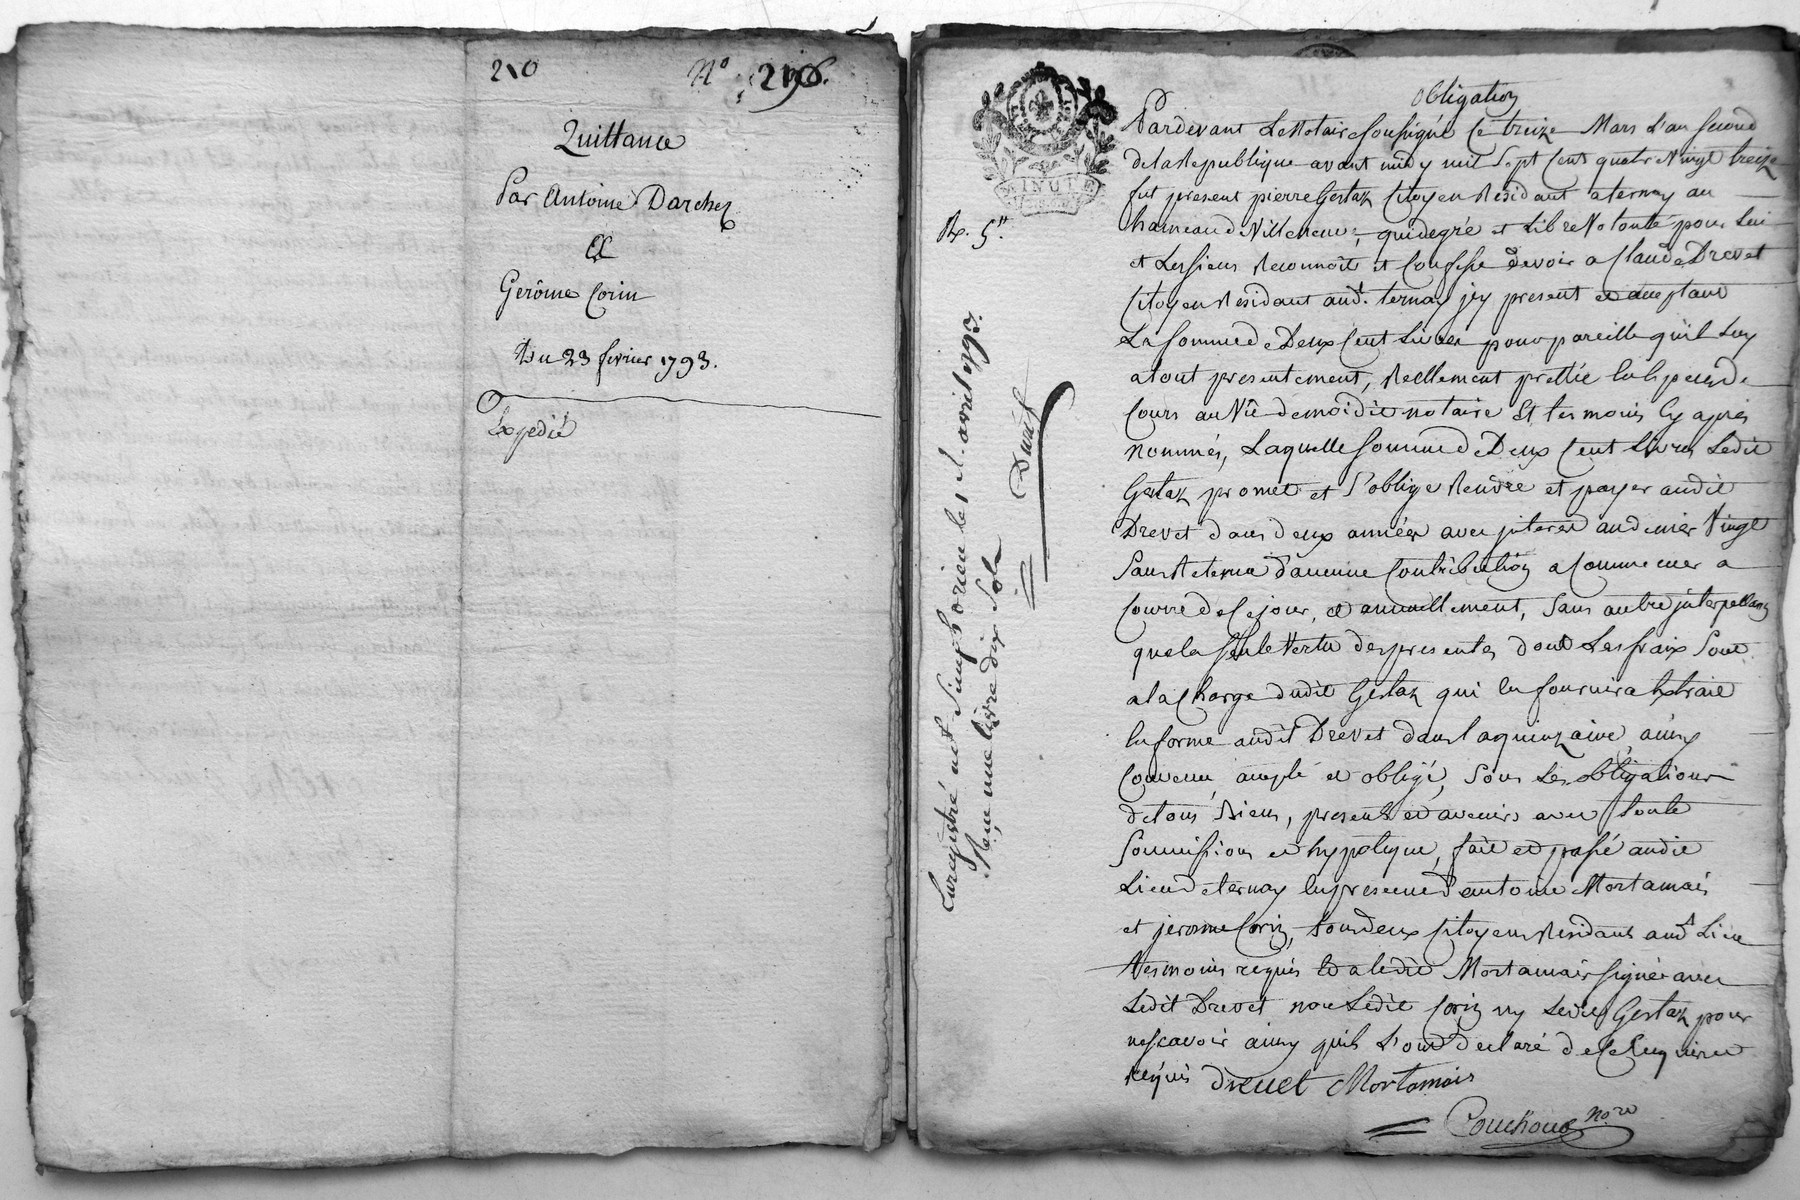 210 N° 216.
Quittance
Par Antoine Darchez
A
Gerôme Corin
Du 23 fevrier 1793.
Expedié
MINUTE
R. 5.
Enregistré a St Simphorien le 1 avril 1793.
Reçu une livre dix sols
Obligation
Pardevant Le Notaire soussigné Ce treize Mars L'an second
de la Republique avant midy mil Sept Cent quatre Vingt treize
fut present pierre Gestaz Citoyen Residant a ternay au
hameau de Villeneuve, qui de gré et Libre Volonté pour Lui
et Les siens Reconnoit et Confesse devoir a Claude Drevet
Citoyen Residant aud. ternay jcy present et acceptant
La somme de Deux Cent Livres pour pareille qu'il Luy
a tout presentement, Reellement prettée En Espece de
Cours au Vû de moidit notaire Et temoins Cy après
nommés, Laquelle somme de Deux Cent Livres Ledit
Gestaz promet et S'oblige Rendre et payer audit
Drevet dans deux années avec jnteret au denier Vingt
Sans Retenue d'aucune Contribution a Commencer a
Courre de Ce jour, et annuellement, Sans autre jnterpellaon
que la seule Vertu des presentes dont Les fraix Sont
a la Charge dudit Gestaz qui En fournira Extrait
En forme audit Drevet dans la quinzaine, ainsy
Convenu, accepté et obligé, Sous Les obligations
de tous Biens, presents et avenirs avec toute
Soumissions et hypoteque, fait et passé audit
Lieu de ternay En presence d'antoine Mortamais
et jerome Corin, tous deux Citoyens Residants aud. Lieu
temoins requis Et a Ledit Mortamais signé avec
Ledit Drevet non Ledit Corin ny Ledit Gestaz pour
ne scavoir ainsy qu'ils L'ont declaré de Ce Enquis et
Requis Drevet Mortamais
Couchoud nore